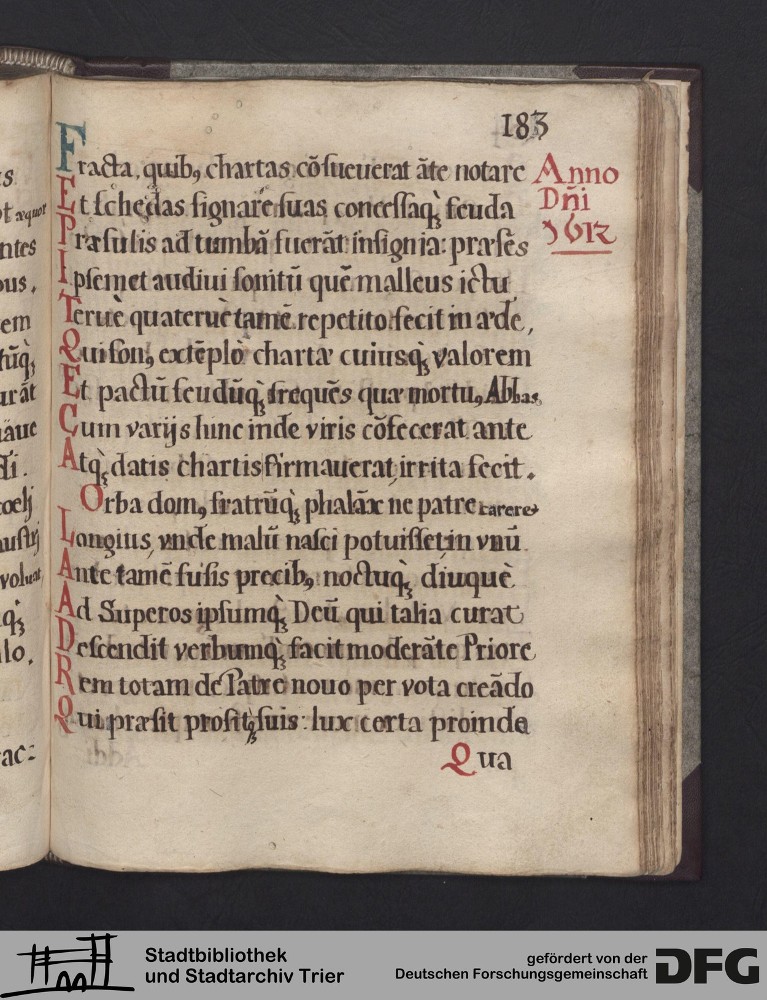 183
Fracta, quibꝰ chartas cõsueuerat ãte notare
Et schedas signare suas concessaq̀ʒ feuda
Præsulis ad tumbã fuerãt insignia: præsẽs
Ipsemet audiui sonitũ quẽ malleus ictu
Teruè quateruè tamẽ repetito fecit in æde,
Qui sonꝰ extẽplo chartæ cuiusq̀ʒ valorem
Et pactũ feudũq̀ʒ frequẽs quæ mortuꝰ Abbas
Cum varijs hinc inde viris cõfecerat ante
Atq̀ʒ datis chartis firmauerat irrita fecit.
Orba domꝰ fratrũq̀ʒ phalãx ne patre careret
Longius, vnde malũ nasci potuisset, in vnũ
Ante tamẽ fusis precibꝰ noctuq̀ʒ diuquè
Ad Superos ipsumq̀ʒ Deũ qui talia curat
Descendit verbumq̀ʒ facit moderãte Priore
Rem totam de Patre nouo per vota creãdo
Qui præsit prositqʒ suis: lux certa proinde
Qua
Anno
Dñi
1612
s
ot æquor
ntes
ous.
em
tũq̀ʒ
urãt
nãue
di.
coelj
austrj
voluat
q̀ʒ
lo.
rac:
Stadtbibliothek
und Stadtarchiv Trier
gefördert von der
Deutschen Forschungsgemeinschaft
DFG